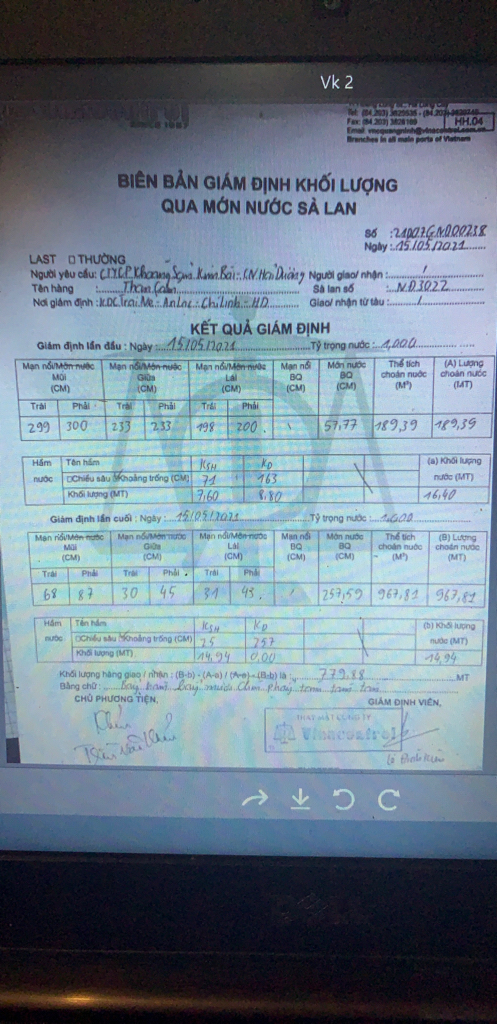 Vk 2
SINCE 1957
Fax: (84.203) 3826169
HH.04
Branches in all main ports of Vietnam
BIÊN BẢN GIÁM ĐỊNH KHỐI LƯỢNG
QUA MỚN NƯỚC SÀ LAN
Số : 21007GND00238
Ngày : 15/05/2021
LAST THƯỜNG
Người yêu cầu: CTYCP Khoáng Sản Kinh Bắc - CN Hải Dương Người giao/ nhận : /
Tên hàng : Than Cám Sà lan số : NĐ3022
Nơi giám định : KDC Trại Mẹ - An Lạc - Chí Linh - HD Giao/ nhận từ tàu : /
KẾT QUẢ GIÁM ĐỊNH
Giám định lần đầu : Ngày : 15/05/2021 Tỷ trọng nước : 1,000
Mạn nổi/Mớn nước Mũi (CM) Mạn nổi/Mớn nước Giữa (CM) Mạn nổi/Mớn nước Lái (CM) Mạn nổi BQ (CM) Mớn nước BQ (CM) Thể tích choán nước (M³) (A) Lượng choán nước (MT)
Trái Phải Trái Phải Trái Phải
299 300 233 233 198 200 57,77 189,39 189,39
Hầm nước Tên hầm KSH KD (a) Khối lượng nước (MT)
Chiều sâu Khoảng trống (CM) 71 163
Khối lượng (MT) 7,60 8,80 16,40
Giám định lần cuối : Ngày : 15/05/2021 Tỷ trọng nước : 1,000
Mạn nổi/Mớn nước Mũi (CM) Mạn nổi/Mớn nước Giữa (CM) Mạn nổi/Mớn nước Lái (CM) Mạn nổi BQ (CM) Mớn nước BQ (CM) Thể tích choán nước (M³) (B) Lượng choán nước (MT)
Trái Phải Trái Phải Trái Phải
68 87 30 45 31 43 257,59 967,81 967,81
Hầm nước Tên hầm KSH KD (b) Khối lượng nước (MT)
Chiều sâu Khoảng trống (CM) 25 257
Khối lượng (MT) 14,94 0,00 14,94
Khối lượng hàng giao / nhận : (B-b) - (A-a) / (A-a) - (B-b) là : 779,88 MT
Bằng chữ : Bảy trăm bảy mươi chín phẩy tám tám tấn
CHỦ PHƯƠNG TIỆN, GIÁM ĐỊNH VIÊN,
THAY MẶT CÔNG TY
Vinacontrol